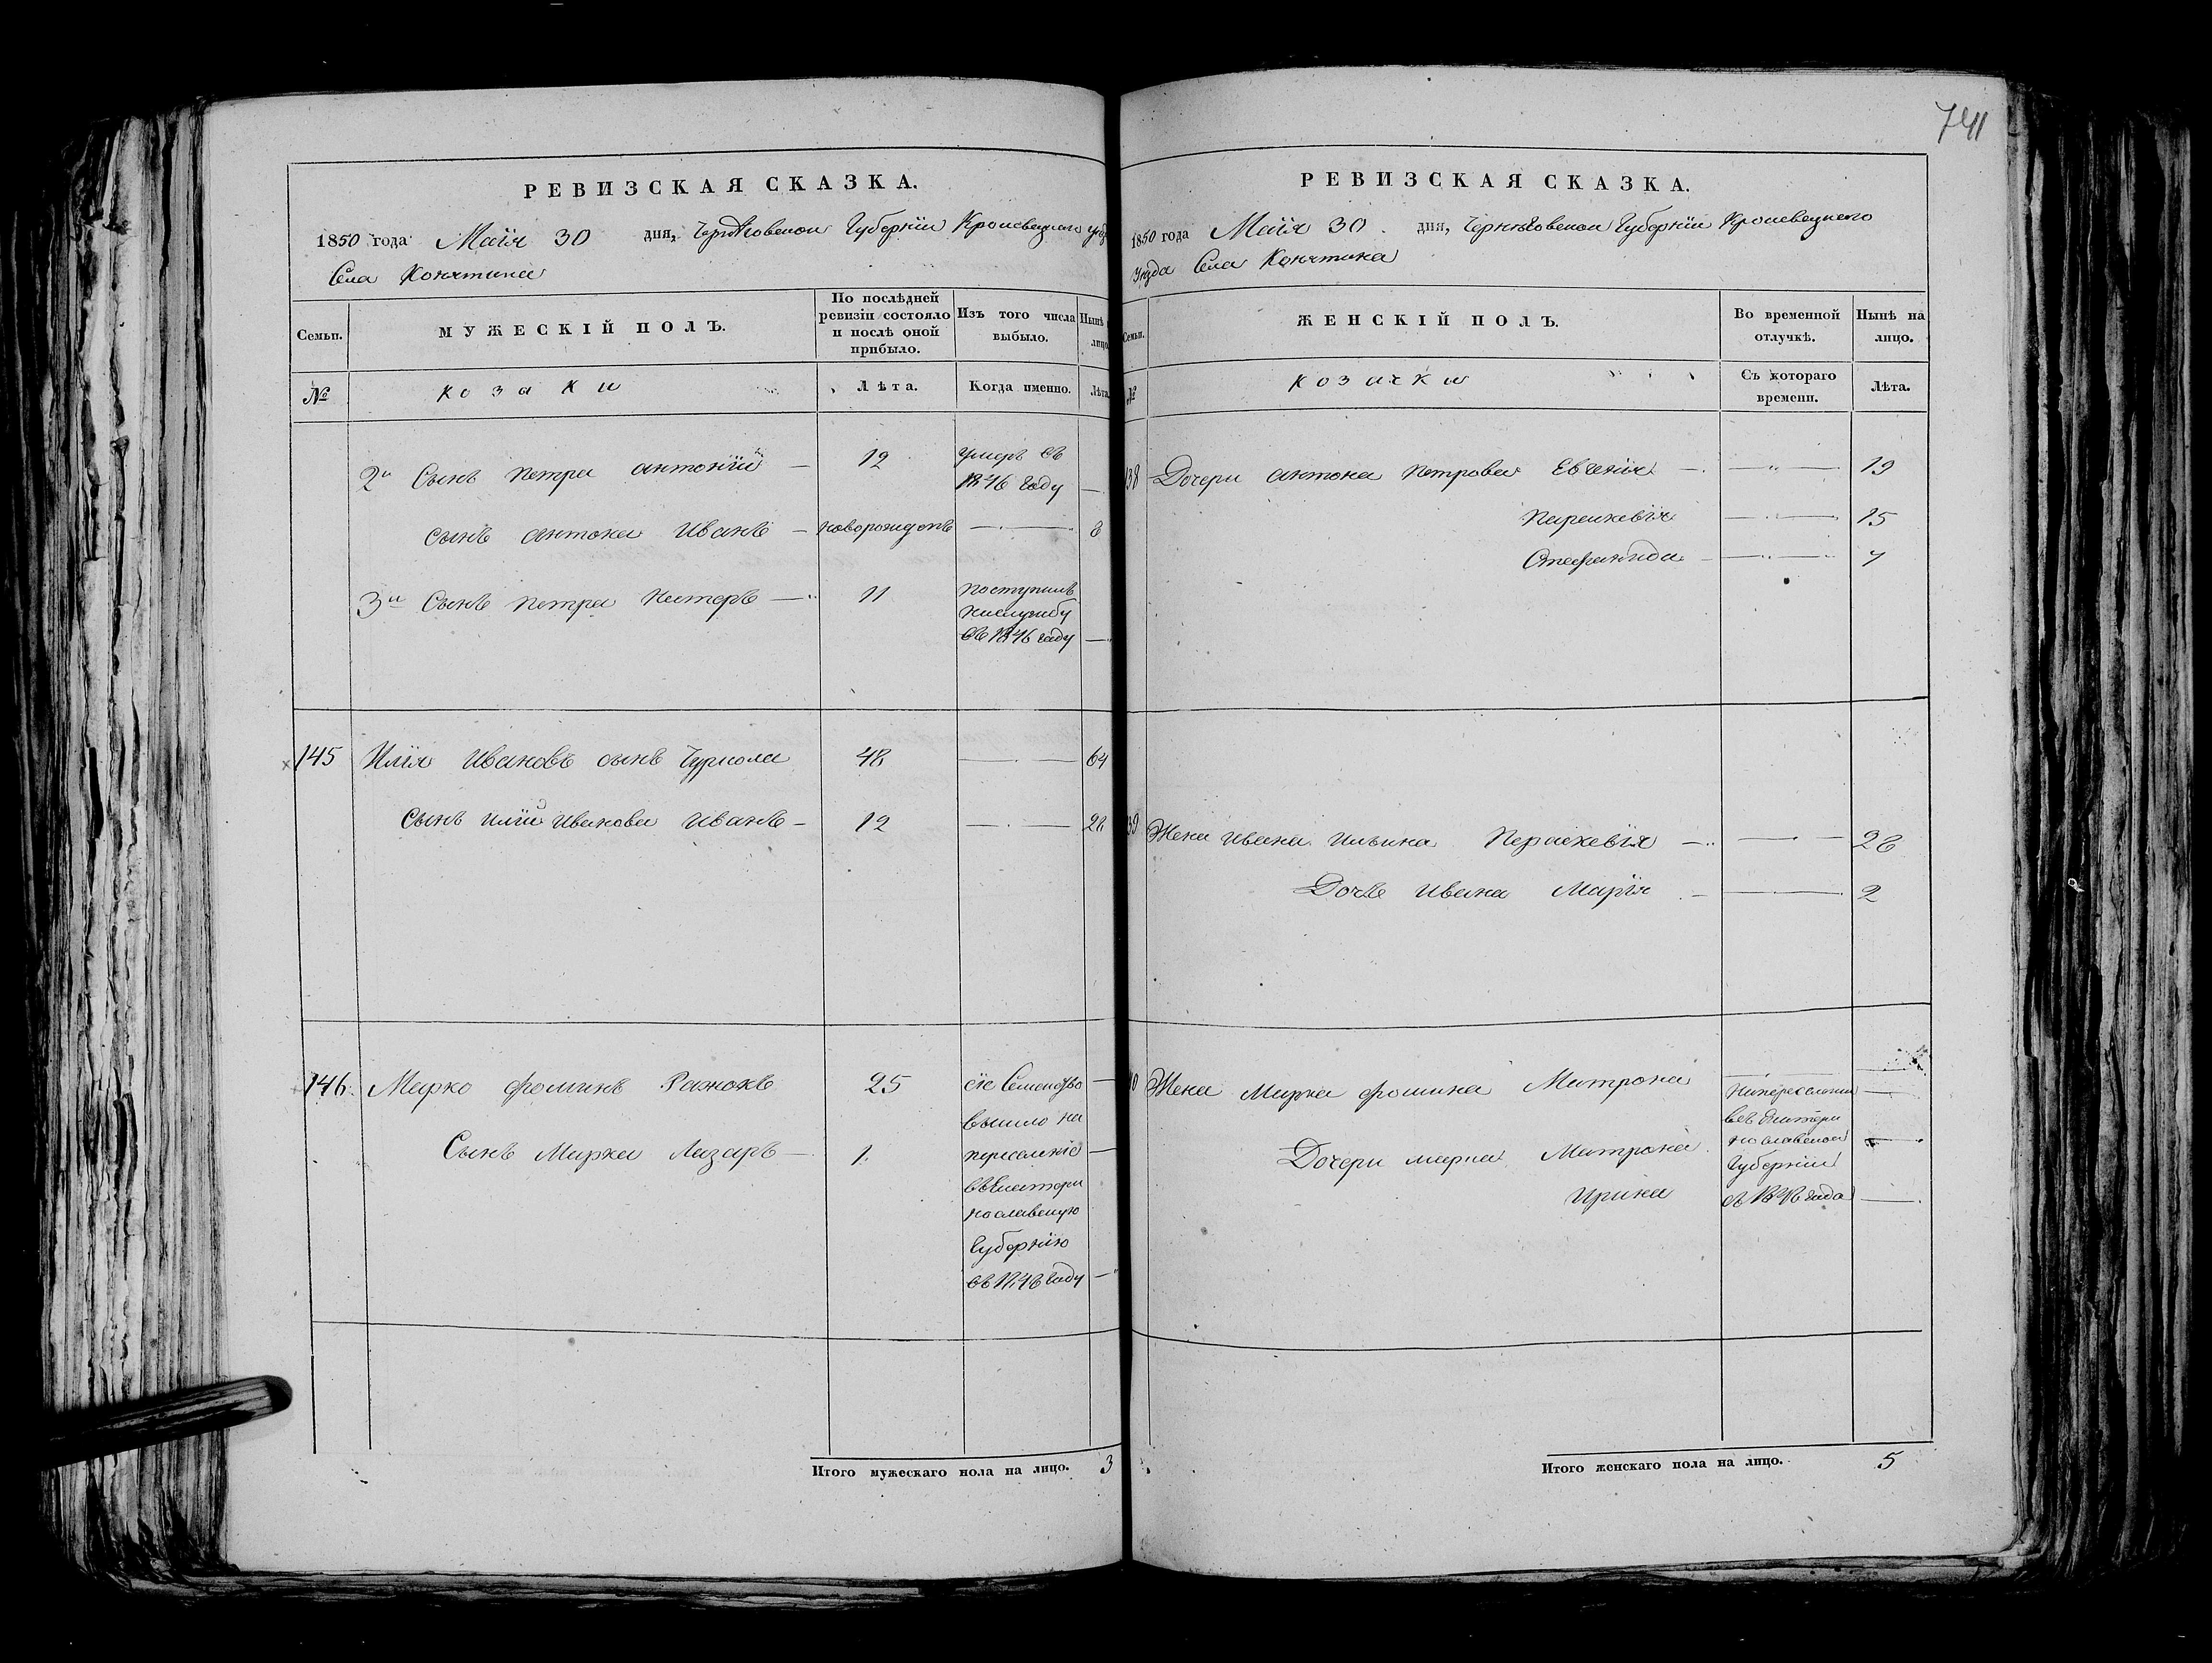 741
РЕВИЗСКАЯ СКАЗКА.
1850 года Маія 30 дня, Черниговской Губерніи Кролевецкого уѣз
Села Конятина
Семьи.
МУЖЕСКІЙ ПОЛЪ.
По послѣдней ревизіи состояло и послѣ оной прибыло.
Изъ того числа выбыло.
Нынѣ
лицо
№
козаки
Лѣта.
Когда именно.
Лѣта
2й Сынъ Петра Антоній — 12 умеръ въ
1846 году —
сынъ Антона Иванъ — новорожденъ — 8
3й Сынъ Петра Нестеръ — 11 поступилъ
на службу
въ 1846 году —
145 Илія Ивановъ сынъ — 48 — 64
Сынъ Иліи Иванова Иванъ — 12 — 28
146 Марко Фоминъ 25 сіе Семейство —
вышло на
Сынъ Марка Лазарь — 1 переселеніе —
въ Екатери
нославскую
Губернію
въ 1846 году —
Итого мужескаго пола на лицо. 3
РЕВИЗСКАЯ СКАЗКА.
1850 года Маія 30 дня, Черниговской Губерніи Кролевецкого
уѣзда Села Конятина
Семьи.
ЖЕНСКІЙ ПОЛЪ.
Во временной отлучкѣ.
Нынѣ на лицо.
№
козачки
Съ котораго времени.
Лѣта.
138 Дочери Антона Петрова Евгенія — 19
Параскевія — 15
Стефанида — 7
139 Жена Ивана Ильина Параскевія — 28
Дочь Ивана Марія — 2
Жена Марка Фомина Матрона — на переселеніи —
въ Екатери
Дочери Марка Матрона нославской —
Губерніи
Ирина съ 1846 года —
Итого женскаго пола на лицо. 5